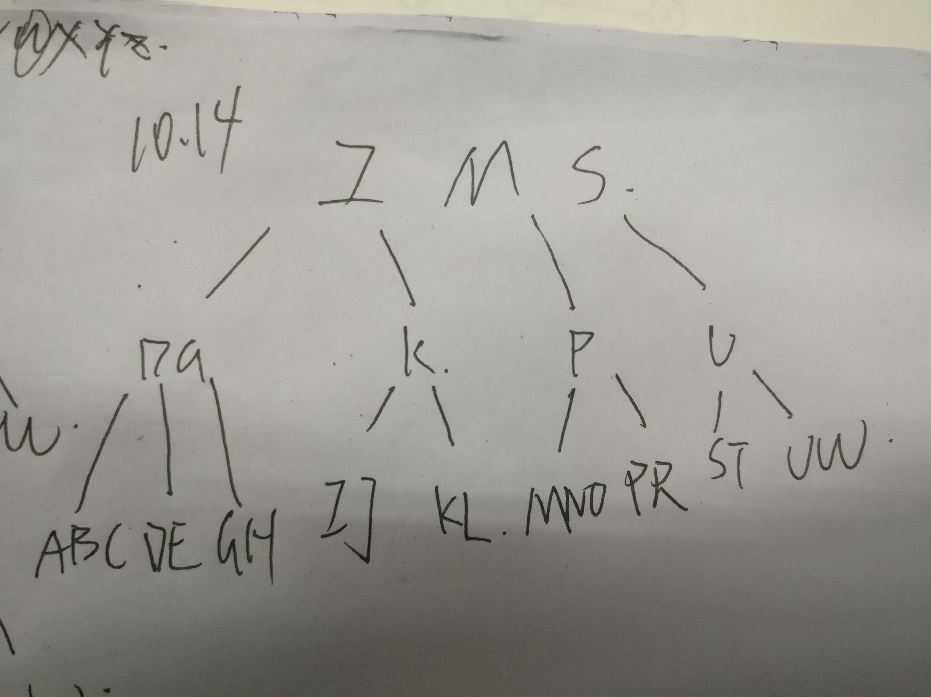 XYZ.
10.14
I M S.
DG K. P U
W.
ABC DE GH IJ KL. MNO PR ST UW.